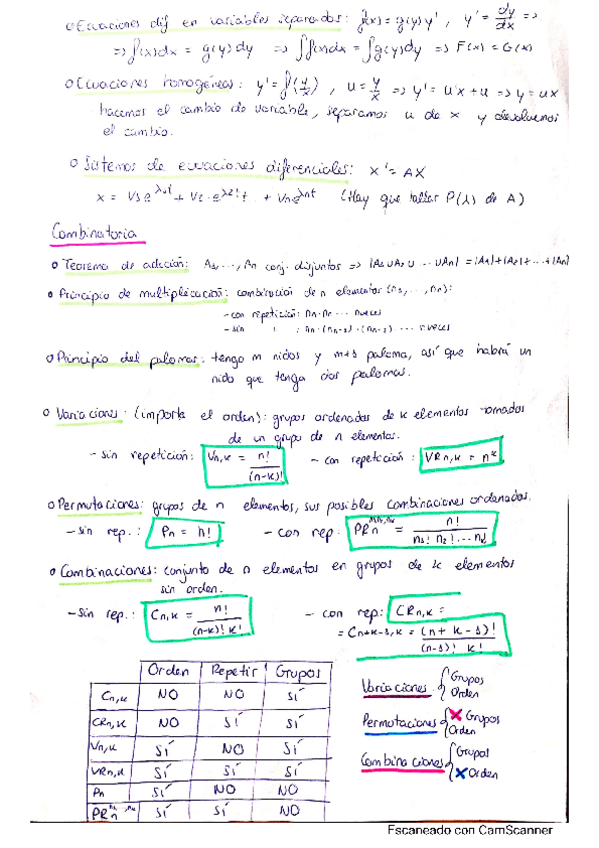 Ecuaciones dif en variables separadas: f(x) = g(y) y' , y' = dy/dx =>
=> f(x)dx = g(y)dy => ∫f(x)dx = ∫g(y)dy => F(x) = G(x)
Ecuaciones homogéneas: y' = f(y/x) , u = y/x => y' = u'x + u => y = ux
hacemos el cambio de variable, separamos u de x y devolvemos
el cambio.
Sistemas de ecuaciones diferenciales: x' = AX
(Hay que hallar P(λ) de A)
Combinatoria
Teorema de adición: A1, ..., An conj. disjuntos => |A1 ∪ A2 ∪ ... ∪ An| = |A1| + |A2| + ... + |An|
Principio de multiplicación: combinación de n elementos (n1, ..., nn):
- con repetición: nn·nn ... nveces
- sin " : nn·(nn-1)·(nn-2) ... nveces
Principio del palomar: tengo m nidos y m+1 paloma, así que habrá un
nido que tenga dos palomas.
Variaciones: (importa el orden): grupos ordenados de k elementos tomados
de un grupo de n elementos.
- sin repetición: Vn,k = n!/(n-k)! - con repetición: VRn,k = n^k
Permutaciones: grupos de n elementos, sus posibles combinaciones ordenadas.
- sin rep.: Pn = n! - con rep: PRn = n!/(n1! n2! ... nk!)
Combinaciones: conjunto de n elementos en grupos de k elementos
sin orden.
- sin rep.: Cn,k = n!/((n-k)! k!) - con rep: CRn,k =
= Cn+k-1,k = (n+k-1)!/((n-1)! k!)
Orden Repetir Grupos
Cn,k NO NO SÍ
CRn,k NO SÍ SÍ
Vn,k SÍ NO SÍ
VRn,k SÍ SÍ SÍ
Pn SÍ NO NO
PRn SÍ SÍ NO
Variaciones { Grupos
Orden
Permutaciones { X Grupos
Orden
Combinaciones { Grupos
X Orden
Escaneado con CamScanner